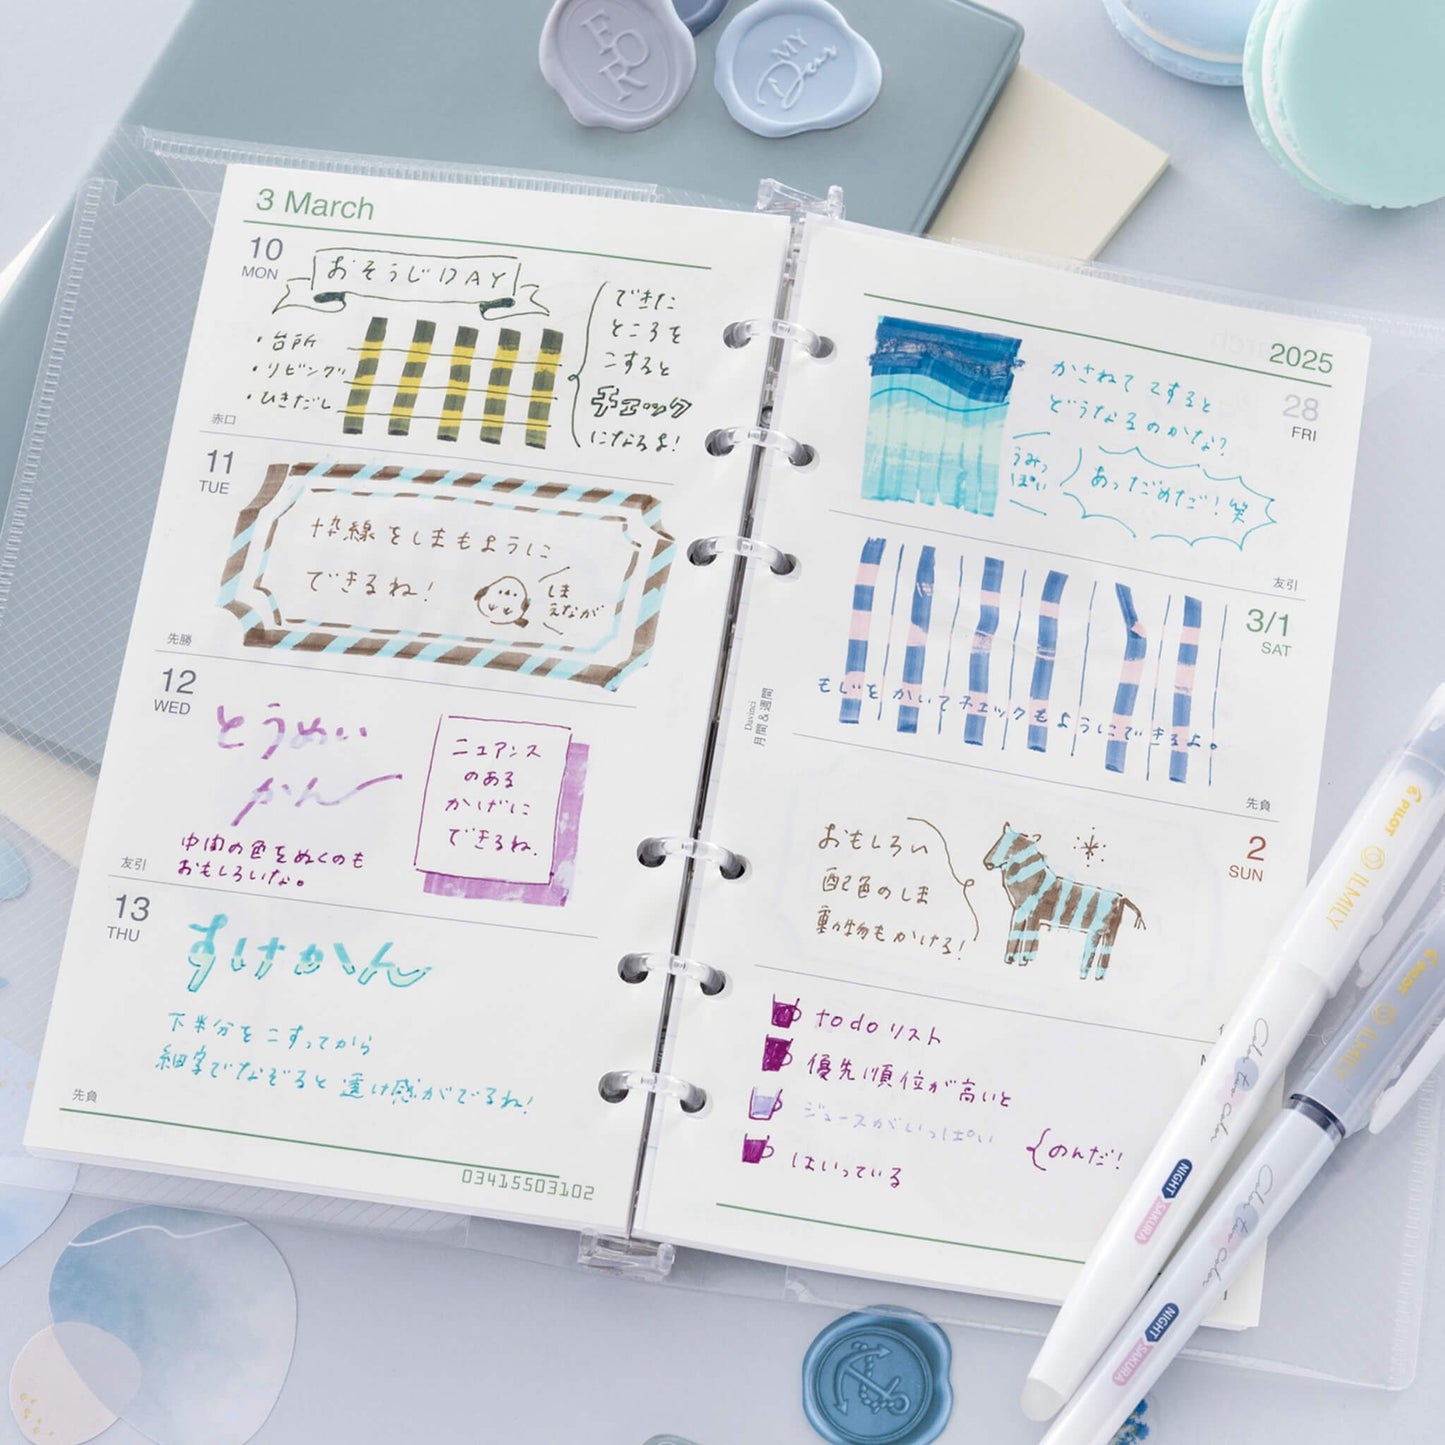 FOR
MY
Dear
3 March
10
MON
おそうじDAY
・台所
・リビング
・ひきだし
できた
ところを
こすると
チェック
になるよ!
赤口
11
TUE
枠線をしまもように
できるね!
しま
えながが
先勝
12
WED
とうめい
かん
中間の色をぬくのも
おもしろいな。
ニュアンス
のある
かげに
できるね.
友引
13
THU
すけかん
下半分をこすってから
細字でなぞると透け感がでるね!
先負
03415503102
Davinci
月間&週間
2025
28
FRI
かさねてこすると
どうなるのかな?
うみっ
ぽい
あっだめだ!笑
友引
3/1
SAT
もじをかいてチェックもようにできるよ。
先負
2
SUN
おもしろい
配色のしま
動物もかける!
todoリスト
優先順位が高いと
ジュースがいっぱい
はいっている
のんだ!
PILOT
ILMILY
Color two Color
NIGHT
SAKURA
PILOT
ILMILY
Color two Color
NIGHT
SAKURA